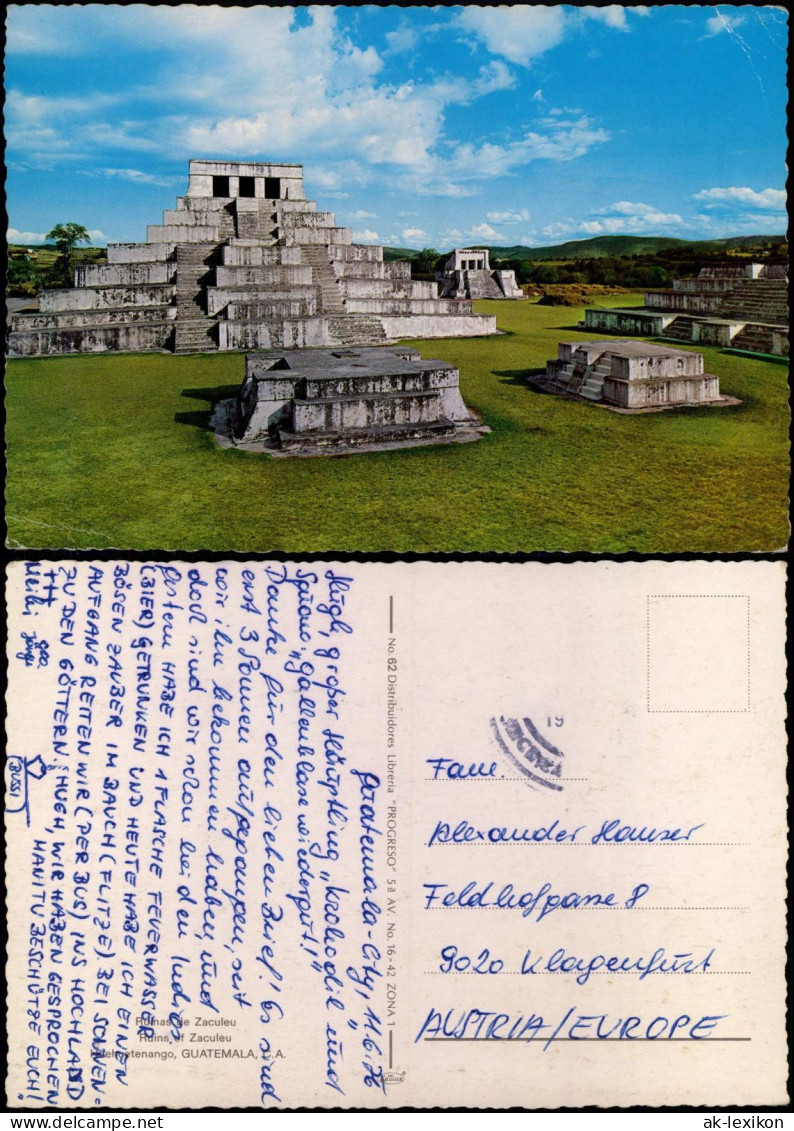 Guatemala-City, 11.6.76
Hugh, großer Häuptling „Krokodil" und
Squaw „Gallenblase wiedergut!"
Danke für den lieben Brief! Es sind
erst 3 Sonnen aufgegangen, seit
wir ihn bekommen haben, und
doch sind wir schon bei den Indios.
Gestern HABE ICH 1 FLASCHE FEUERWASSER
(BIER) GETRUNKEN UND HEUTE HABE ICH EINEN
BÖSEN ZAUBER IM BAUCH (FLITZE). BEI SONNEN=
AUFGANG REITEN WIR (PER BUS) INS HOCHLAND
ZU DEN GÖTTERN. HUGH, WIR HABEN GESPROCHEN
MANITU BESCHÜTZE EUCH!
BUSSI
No. 62 Distribuidores Libreria "PROGRESO" 5ª AV. No. 16-42 ZONA 1
Ruinas de Zaculeu
Ruins of Zaculeu
Huehuetenango, GUATEMALA, C.A.
Fam.
Alexander Hauser
Feldhofgasse 8
9020 Klagenfurt
AUSTRIA/EUROPE
ak-lexikon
www.ak-lexikon.de